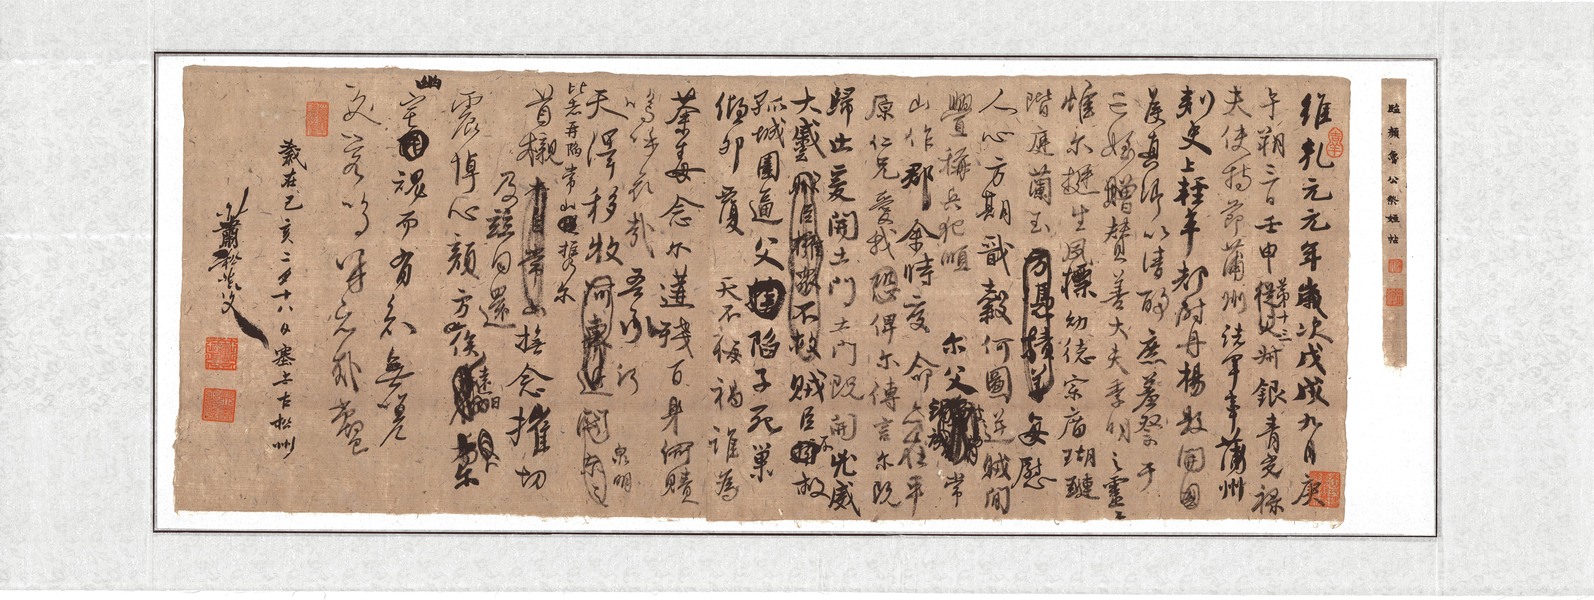 臨顏魯公祭姪帖
維乾元元年歲次戊戌九月庚
午朔三日壬申第十三從父叔銀青光祿
夫使持節蒲州諸軍事蒲州
刺史上輕車都尉丹楊縣開國
侯真卿以清酌庶羞祭于
亡姪贈贊善大夫季明之靈曰
惟爾挺生夙標幼德宗廟瑚璉
階庭蘭玉方憑積善每慰
人心方期戩穀何圖逆賊間
釁稱兵犯順爾父常
山作郡余時受命亦在平
原仁兄愛我恐俾爾傳言爾既
歸止爰開土門土門既開凶威
大蹙賊臣擁眾不救賊臣不救
孤城圍逼父陷子死巢
傾卵覆天不悔禍誰為
荼毒念爾遘殘百身何贖
嗚呼哀哉吾承
天澤移牧河東近泉明
比者再陷常山攜爾
首櫬及茲同還撫念摧切
震悼心顏方俟遠日
幽宅魂而有知無嗟
久客嗚呼哀哉尚饗
歲在己亥二月十八日塞上古松州